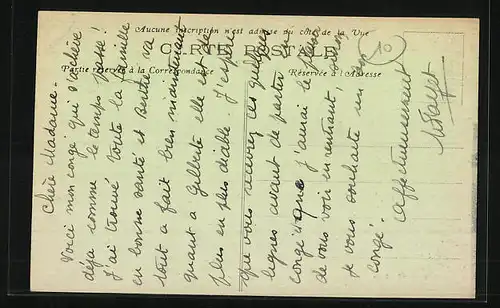 Aucune inscription n'est admise du côté de la Vue
CARTE POSTALE
Partie réservée à la Correspondance
Réservée à l'Adresse
Chère Madame.
Voici mon congé qui s'achève
déja comme le temps passe!
J'ai trouvé toute la famille
en bonne santé et Berthe va
tout a fait bien maintenant
quant a Gilberte elle est de
plus en plus diable. J'espère
que vous recevrez ces quelques
lignes avant de partir en
congé que j'aurai le plaisir
de vous voir en rentrant, sinon
je vous souhaite un bon
congé.
Affectueusement